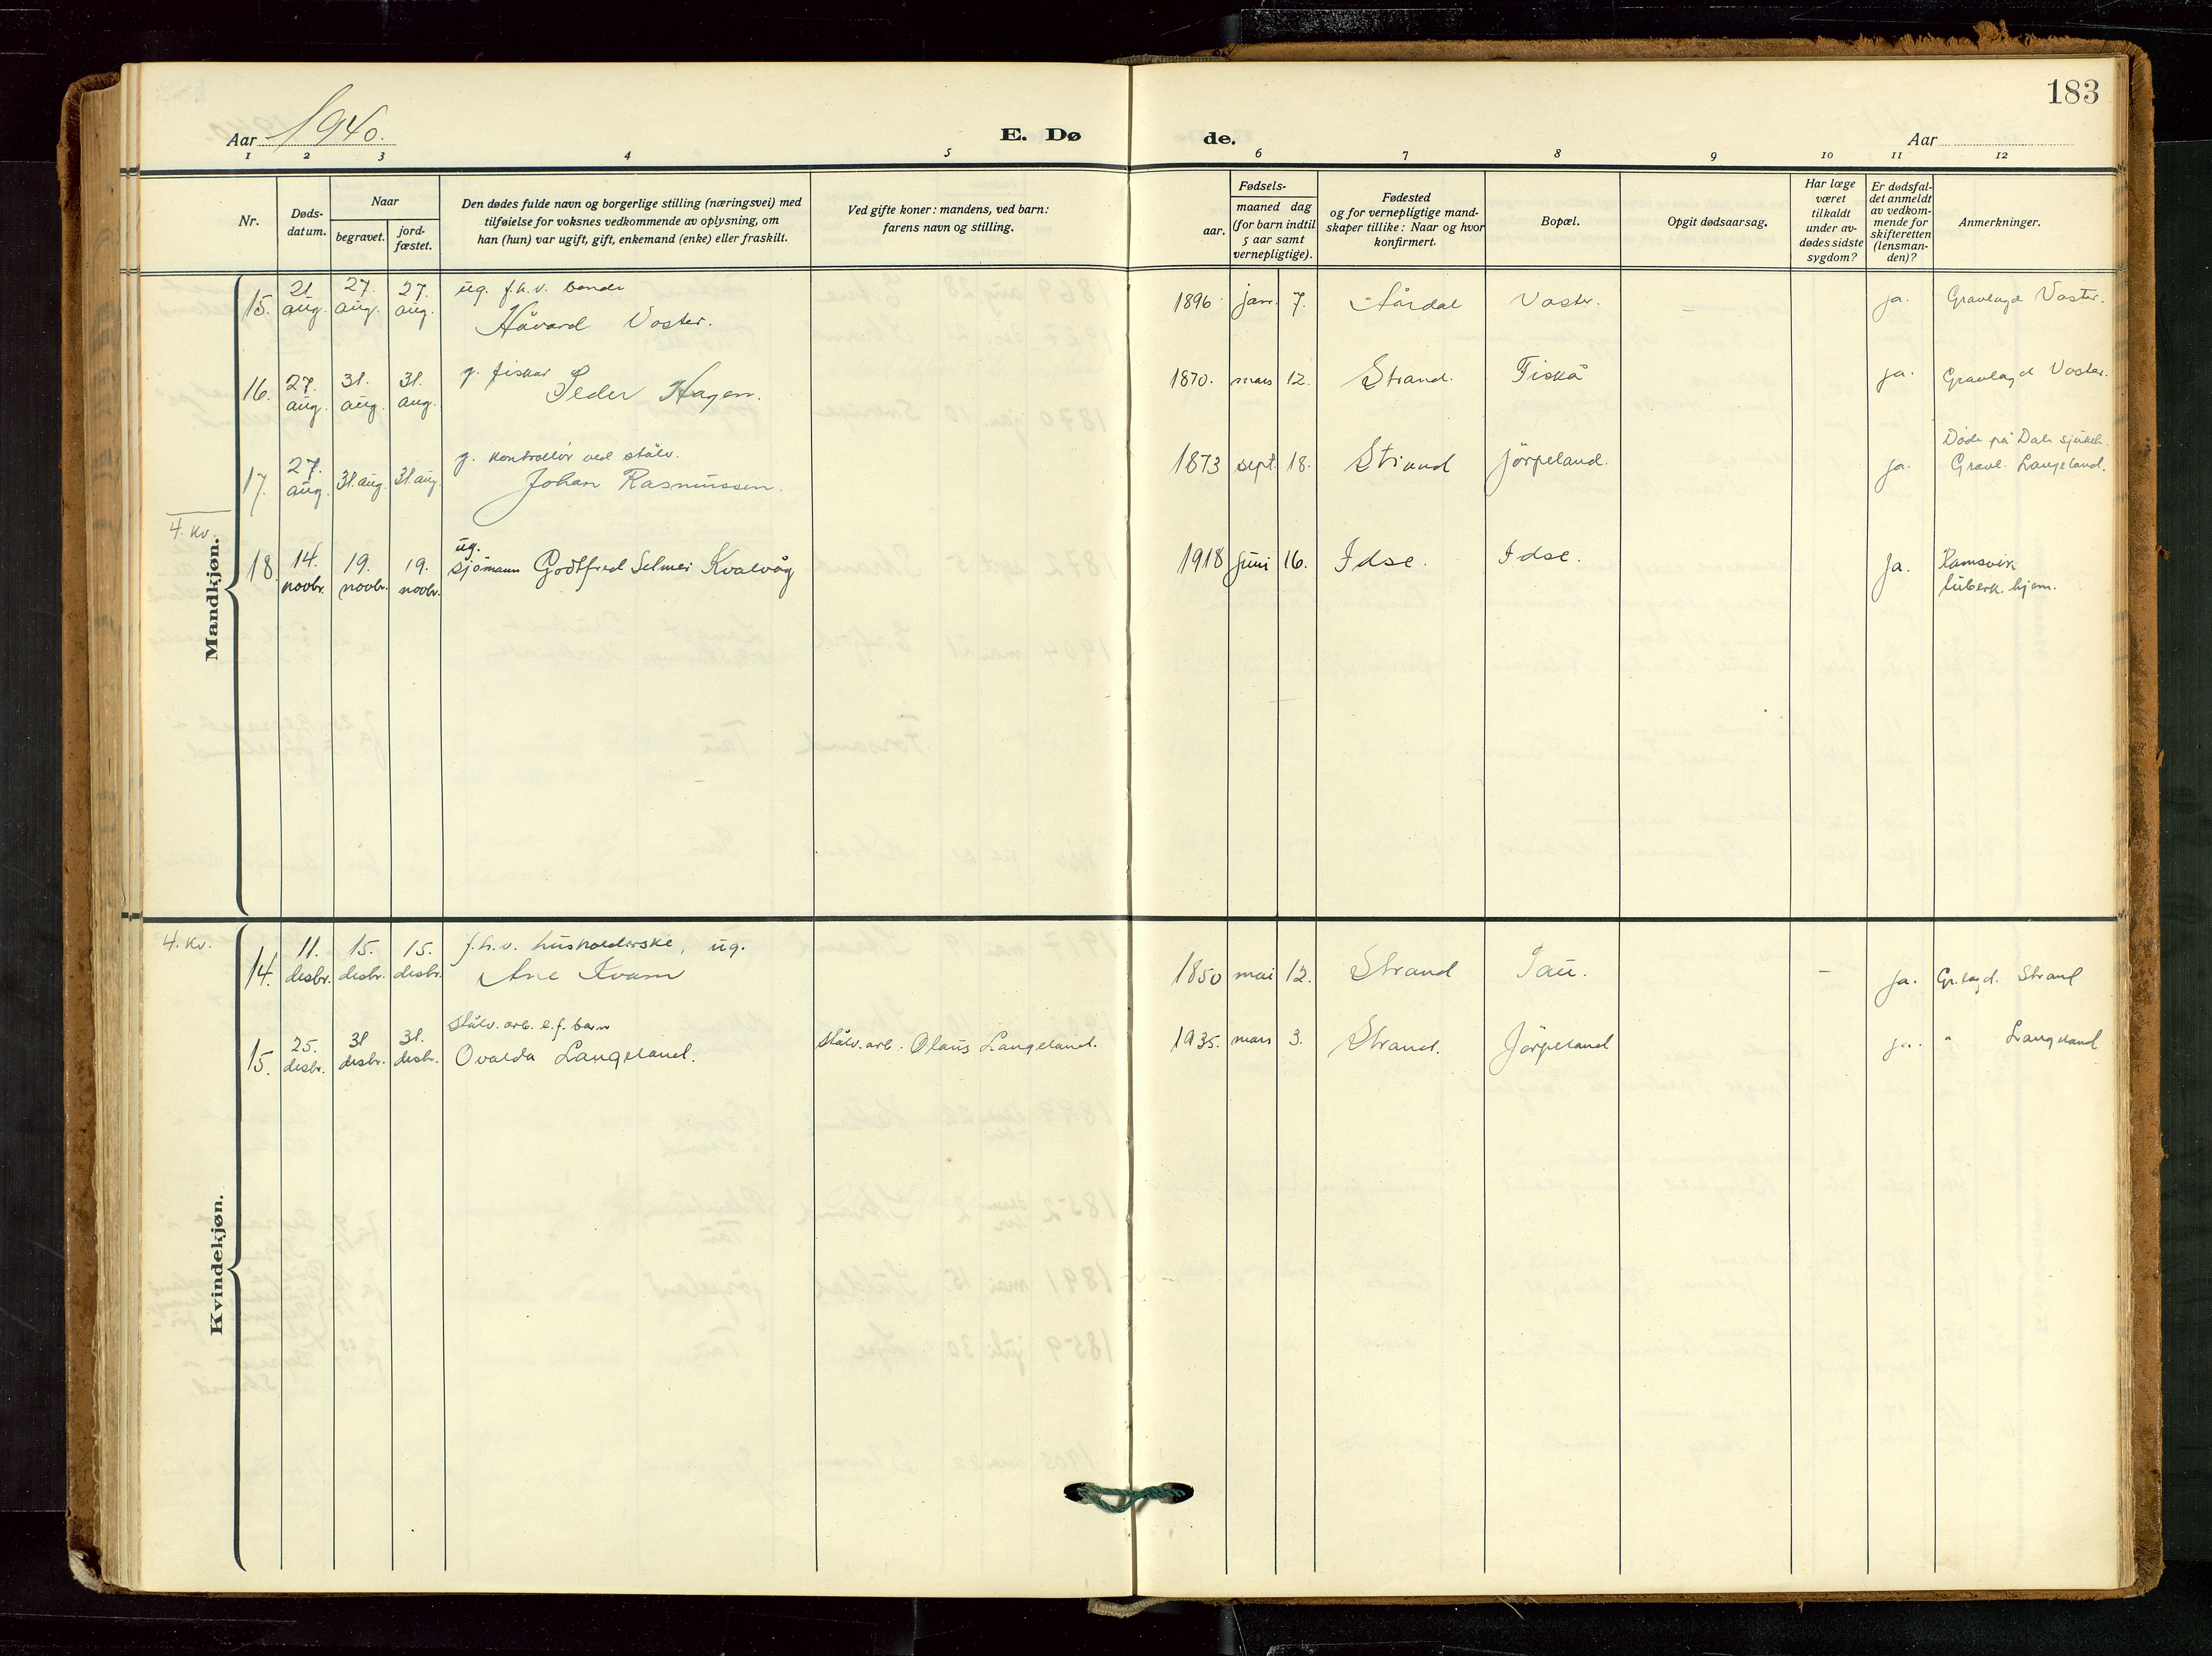 183
Aar 1940.
E. Dø
de.
Aar
1 2 3 4 5 6 7 8 9 10 11 12
Nr.
Døds-
datum.
Naar
begravet.
jord-
fæstet.
Den dødes fulde navn og borgerlige stilling (næringsvei) med
tilføielse for voksnes vedkommende av oplysning, om
han (hun) var ugift, gift, enkemand (enke) eller fraskilt.
Ved gifte koner: mandens, ved barn:
farens navn og stilling.
Fødsels-
aar.
maaned dag
(for barn indtil
5 aar samt
vernepligtige).
Fødested
og for vernepligtige mand-
skaper tillike: Naar og hvor
konfirmert.
Bopæl.
Opgit dødsaarsag.
Har læge
været
tilkaldt
under av-
dødes sidste
sygdom?
Er dødsfal-
det anmeldt
av vedkom-
mende for
skifteretten
(lensman-
den)?
Anmerkninger.
Mandkjøn.
15. 21. aug. 27. aug. 27. aug. ug. f.h.v. bonde
Håvard Voster. 1896 jan. 7. Årdal Voster. ja. Gravlagd Voster.
16. 27. aug. 31. aug. 31. aug. g. fiskar Peder Hagen. 1870. mars 12. Strand. Fiskå ja. Gravlagd Voster.
17. 27. aug. 31. aug. 31. aug. g. kontrollör ved stålv.
Johan Rasmussen. 1873 sept. 18. Strand Jörpeland. ja. Döde på Dale sjukeh.
Gravl. Langeland.
4. kv.
18. 14. novbr. 19. novbr. 19. novbr. ug.
sjömann Godtfred Selmer Kvalvåg 1918 juni 16. Idse. Idse. Ja. Ramsvik
tuberk. hjem.
Kvindekjøn.
4. kv.
14. 11. desbr. 15. desbr. 15. desbr. f.h.v. husholderske, ug.
Ane Kvam 1850 mai 12. Strand Tau. – ja. Gr.lagd. Strand
15. 25. desbr. 31 desbr. 31. desbr. stålv. arb. e.f. barn
Ovalda Langeland. stålv. arb. Olaus Langeland. 1935. mars 3. Strand. Jörpeland ja. " Langeland